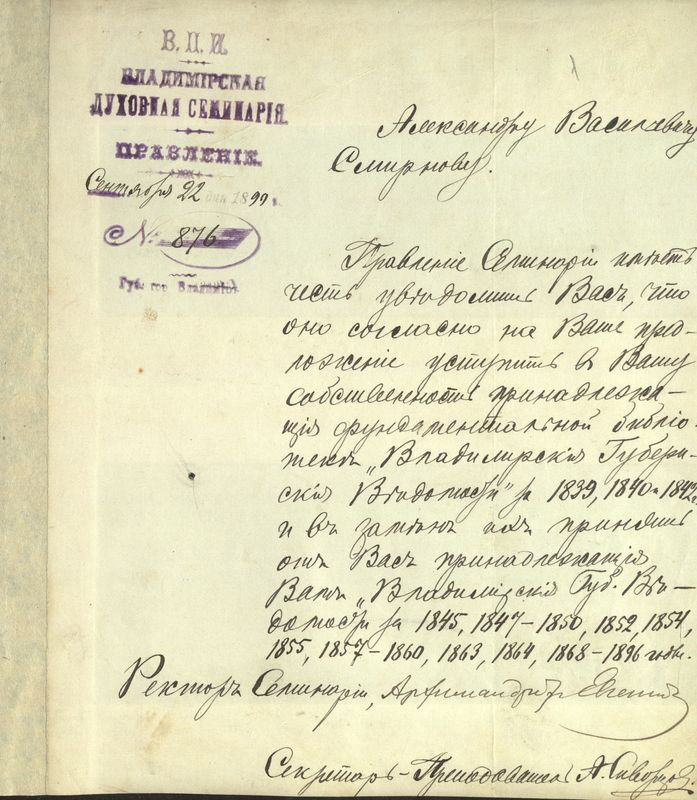 В. П. И.
ВЛАДИМІРСКАЯ
ДУХОВНАЯ СЕМИНАРІЯ.
ПРАВЛЕНІЕ.
Сентября 22 дня 1899 г.
№ 876
Губ. гор. Владиміръ
Александру Васильевичу
Смирнову.
Правленіе Семинаріи имѣетъ
честь увѣдомить Васъ, что
оно согласно на Ваше пред-
ложеніе уступить въ Вашу
собственность принадлежа-
щія фундаментальной библіо-
текѣ „Владимірскія Губерн-
скія Вѣдомости" за 1839, 1840 и 1842 г.
и въ замѣнъ ихъ принять
отъ Васъ принадлежащія
Вамъ „Владимірскія Губ. Вѣ-
домости за 1845, 1847–1850, 1852, 1854,
1855, 1857–1860, 1863, 1864, 1868–1896 годы.
Ректоръ Семинаріи, Архимандритъ Евгеній
Секретарь–Преподаватель А.